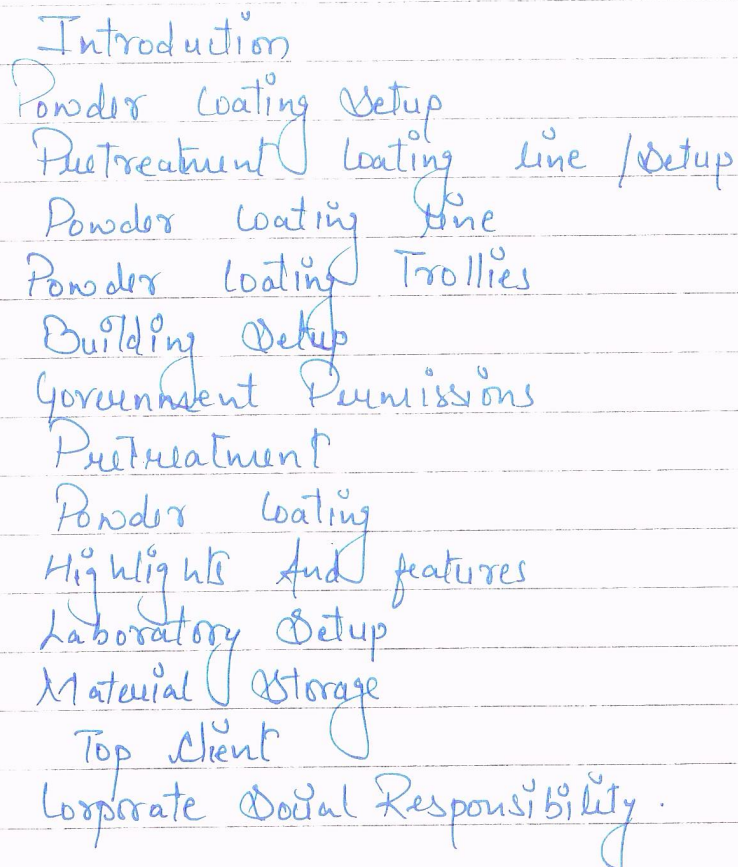 Introduction
Powder Coating Setup
PreTreatment Coating line / Setup
Powder Coating line
Powder Coating Trollies
Building Setup
Government Permissions
PreTreatment
Powder Coating
Highlights And features
Laboratory Setup
Material Storage
Top Client
Corporate Social Responsibility.